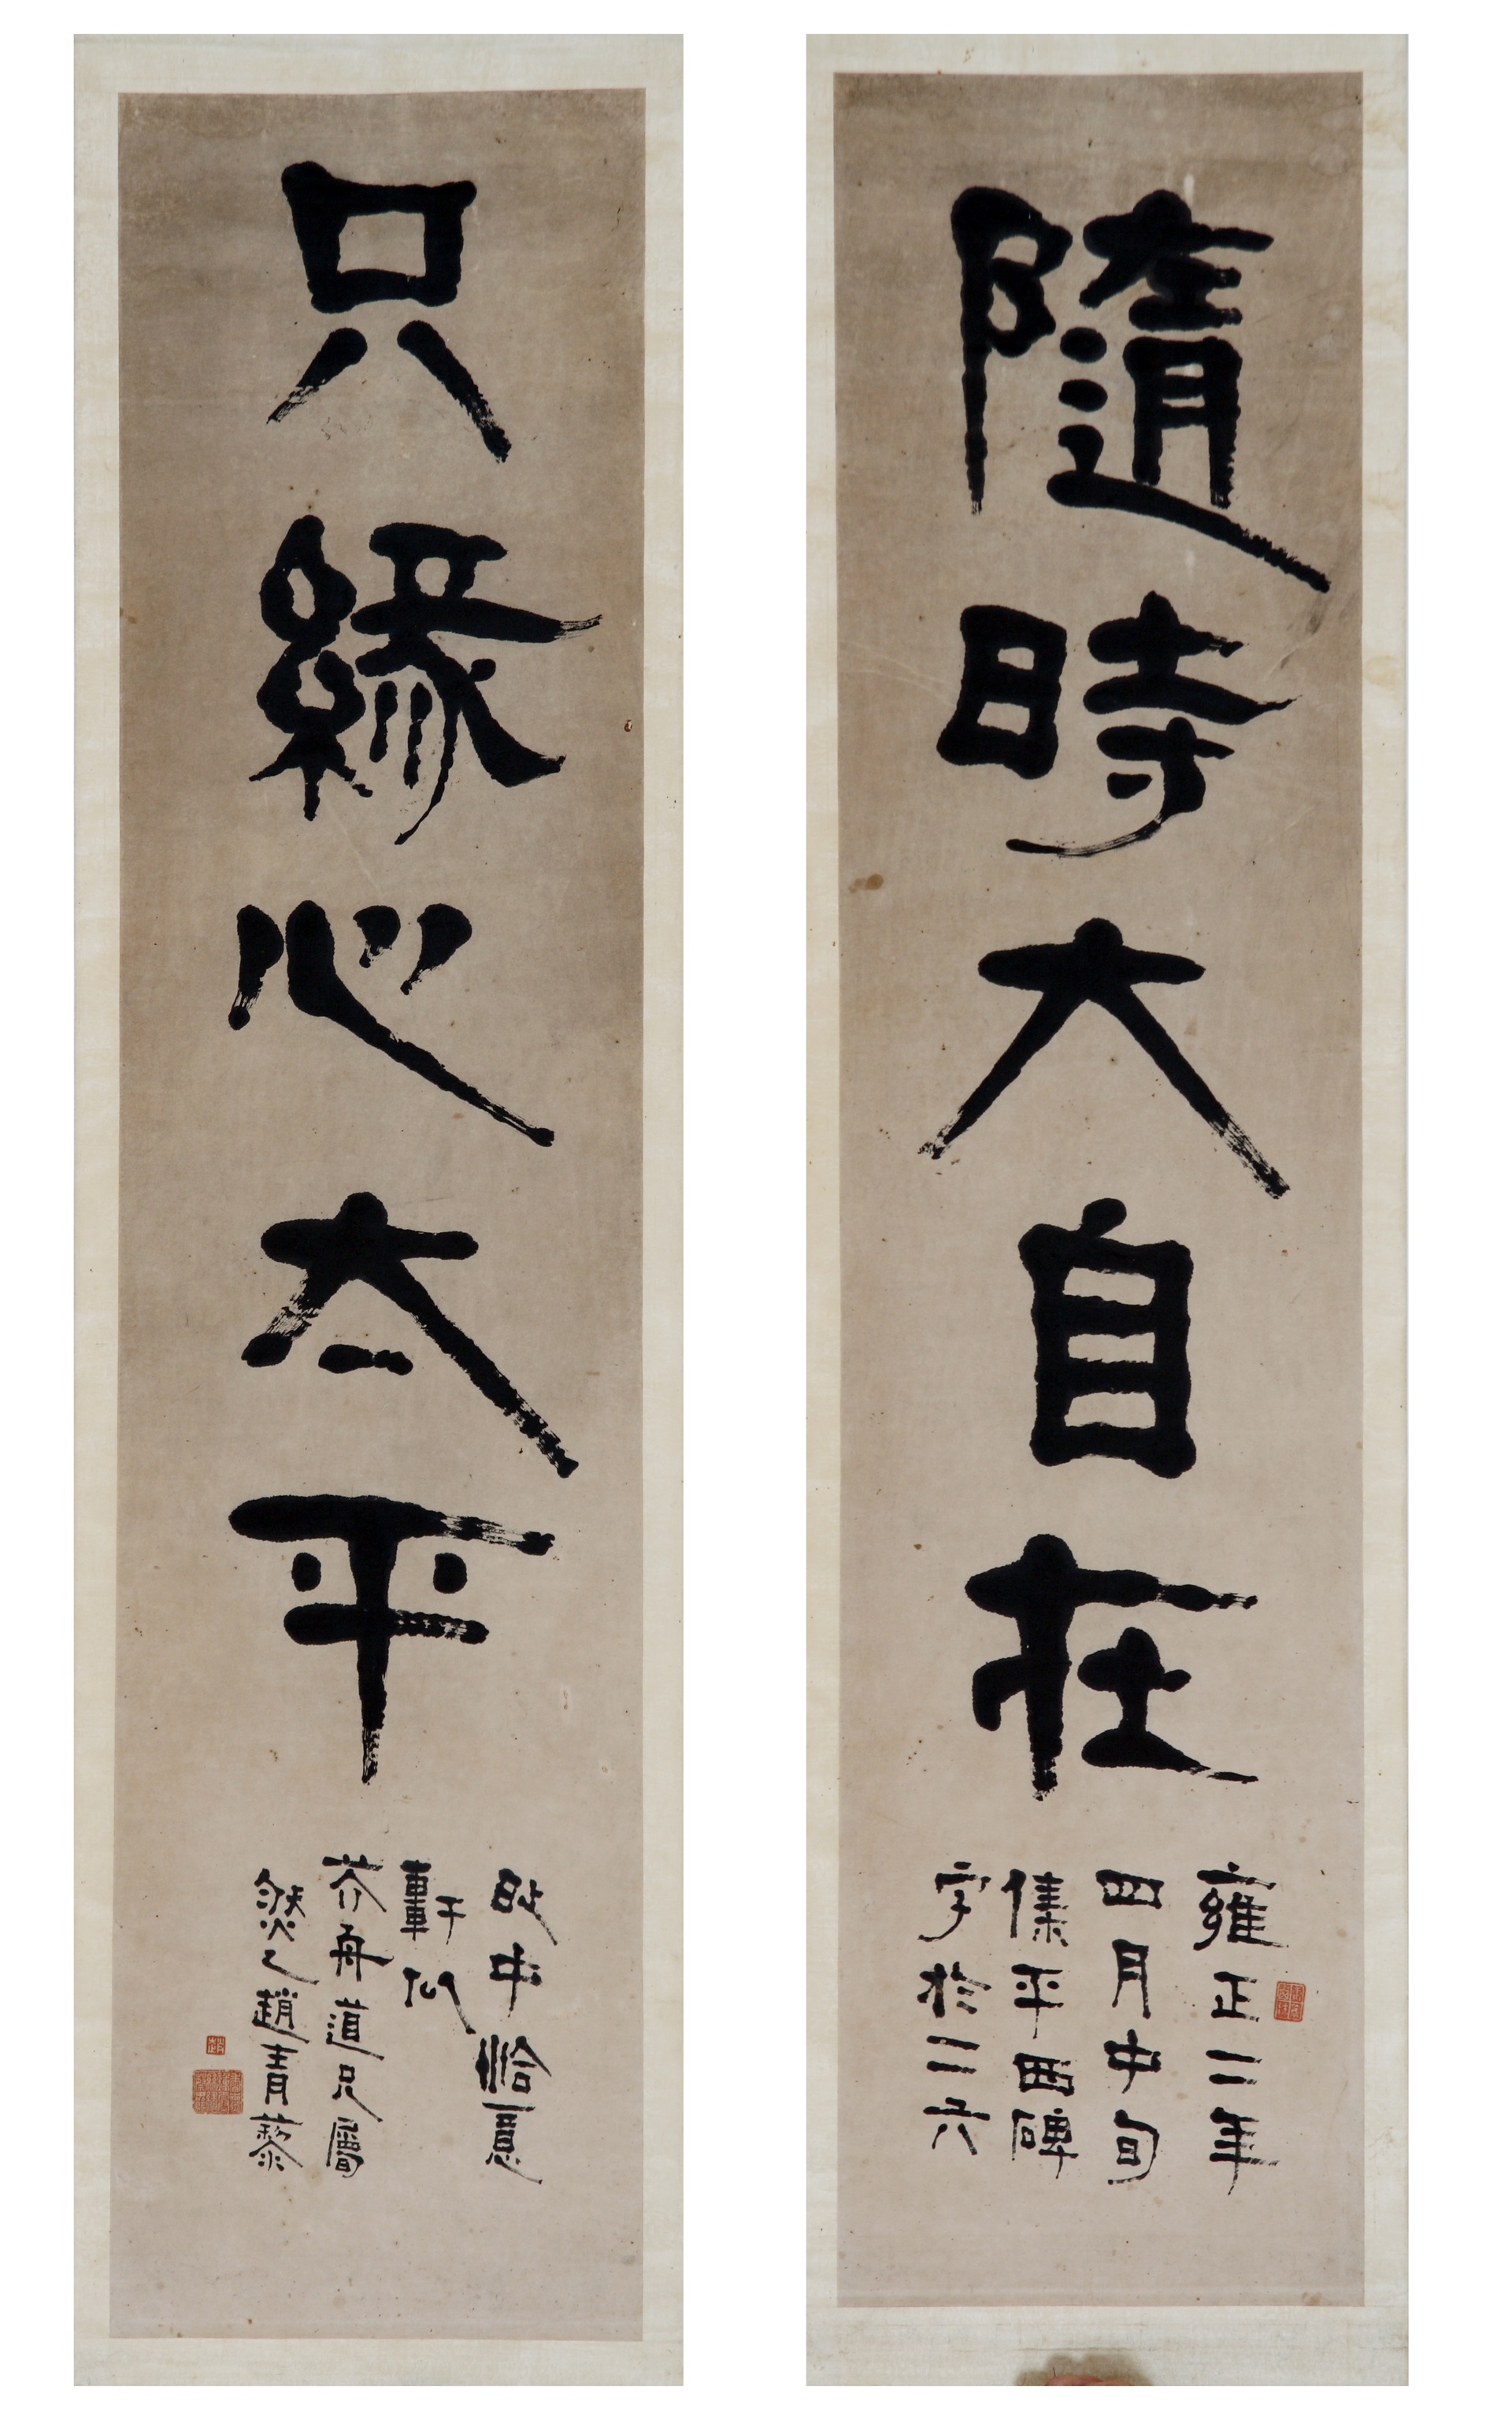 隨時大自在
雍正二年
四月中旬
集平西碑
字於二六
只緣心太平
中恰意
軒
芥舟道兄屬
然乙趙青藜